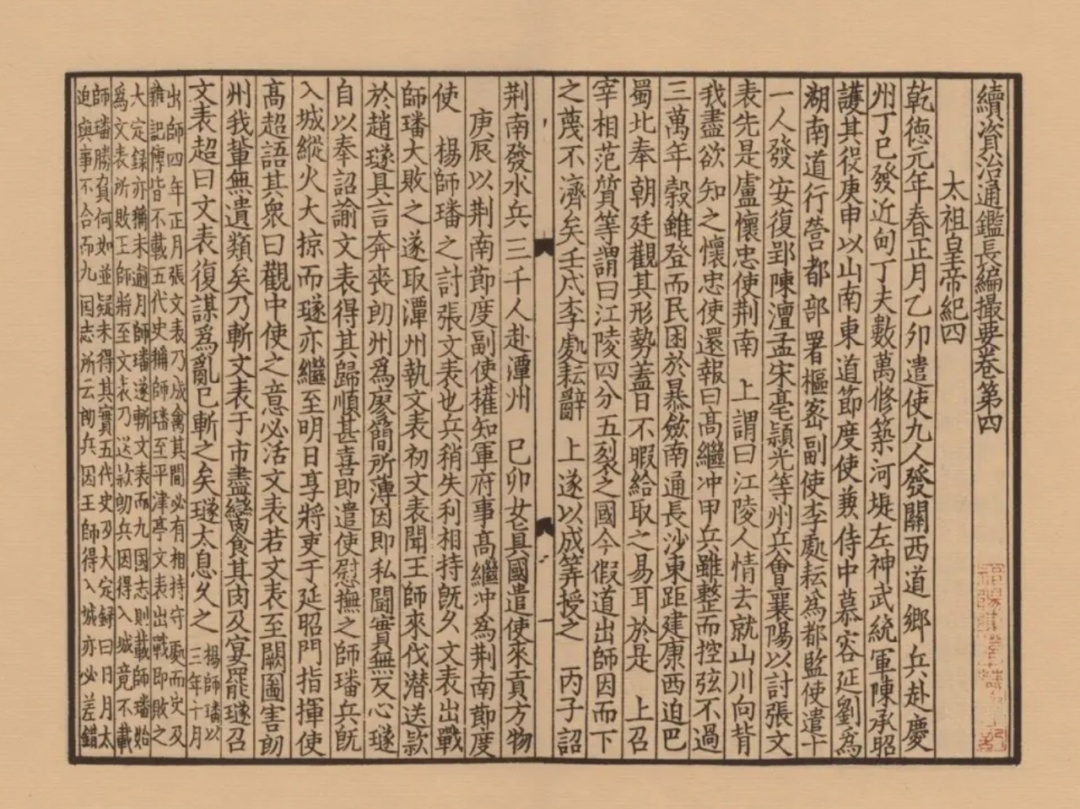 續資治通鑑長編撮要卷第四
太祖皇帝紀四
乾德元年春正月乙卯遣使九人發關西道鄉兵赴慶
州丁巳發近甸丁夫數萬修築河堤左神武統軍陳承昭
護其役庚申以山南東道節度使兼侍中慕容延釗爲
湖南道行營都部署樞密副使李處耘爲都監使遣十
一人發安復郢陳澶孟宋亳潁光等州兵會襄陽以討張文
表先是盧懷忠使荆南 上謂曰江陵人情去就山川向背
我盡欲知之懷忠使還報曰高繼冲甲兵雖整而控弦不過
三萬年穀雖登而民困於暴斂南通長沙東距建康西迫巴
蜀北奉 朝廷觀其形勢蓋日不暇給取之易耳於是 上召
宰相范質等謂曰江陵四分五裂之國今假道出師因而下
之蔑不濟矣壬戌李處耘辭 上遂以成筭授之 丙子詔
荆南發水兵三千人赴潭州 己卯女真國遣使來貢方物
庚辰以荆南節度副使權知軍府事高繼冲爲荆南節度
使 楊師璠之討張文表也兵稍失利相持旣久文表出戰
師璠大敗之遂取潭州執文表初文表聞王師來伐潛送款
於趙璲具言奔喪朗州爲廖簡所薄因即私鬪實無反心璲
自以奉詔諭文表得其歸順甚喜即遣使慰撫之師璠兵旣
入城縱火大掠而璲亦繼至明日享將吏于延昭門指揮使
高超語其衆曰觀中使之意必活文表若文表至闕圖害朗
州我輩無遺類矣乃斬文表于市盡臠食其肉及宴罷璲召
文表超曰文表復謀爲亂已斬之矣璲太息久之 楊師璠以三年十月
出師四年正月張文表乃成禽其間必有相持守 而史及
雜記傳皆不載五代史稱師璠至平津亭文表出戰即敗之
大定錄亦稱未逾月師璠遂斬文表而九國志則載師璠始
爲文表所敗王師將至文表乃送款朗兵因得入城竟不載
師璠勝負何如並疑未得其實五代史及大定錄曰月太
迫與事不合而九國志所云朗兵因王師得入城亦必差錯